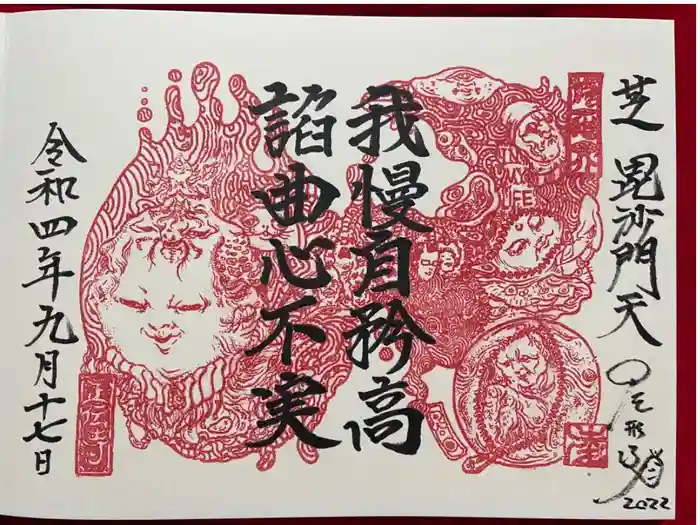 芝 毘沙門天
2022
我慢自矜高
諂曲心不実
令和四年九月十七日